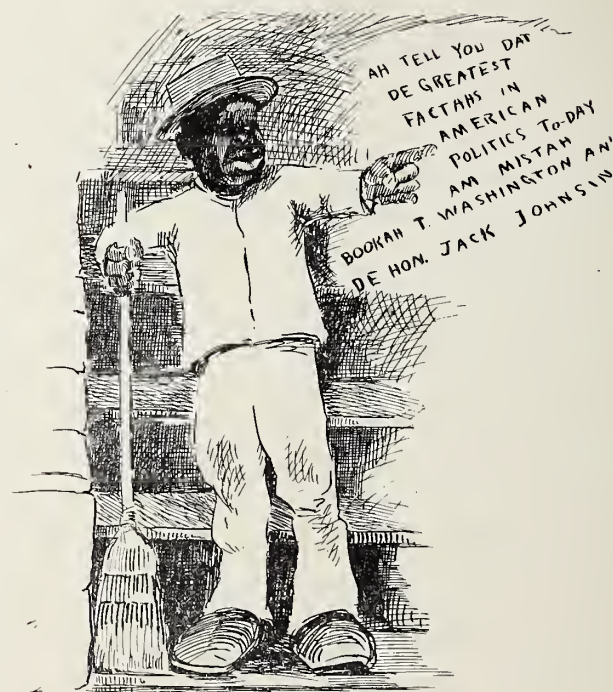 AH TELL YOU DAT
DE GREATEST
FACTAHS IN
AMERICAN
POLITICS TO-DAY
AM MISTAH
BOOKAH T. WASHINGTON AN'
DE HON. JACK JOHNSIN